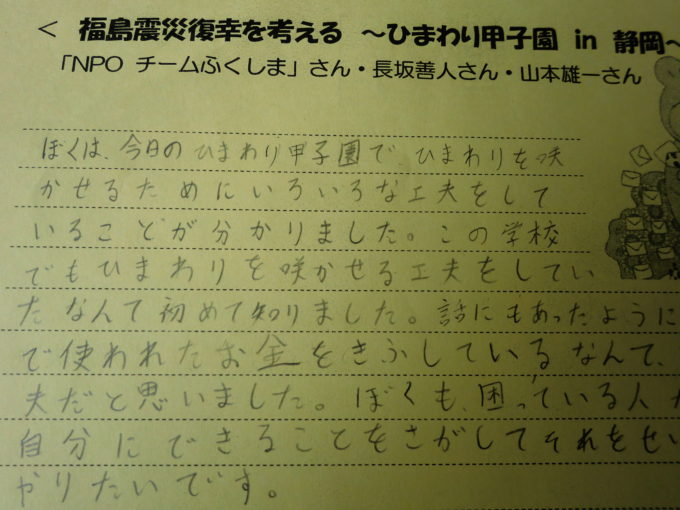 ＜ 福島震災復幸を考える ～ひまわり甲子園 in 静岡～
「NPO チームふくしま」さん・長坂善人さん・山本雄一さん
ぼくは、今日のひまわり甲子園で、ひまわりを咲
かせるためにいろいろな工夫をして
いることが分かりました。この学校
でもひまわりを咲かせる工夫をしてい
たなんて初めて知りました。話にもあったように
で使われたお金をきふしているなんて、
夫だと思いました。ぼくも、困っている人
自分にできることをさがしてそれをせい
やりたいです。